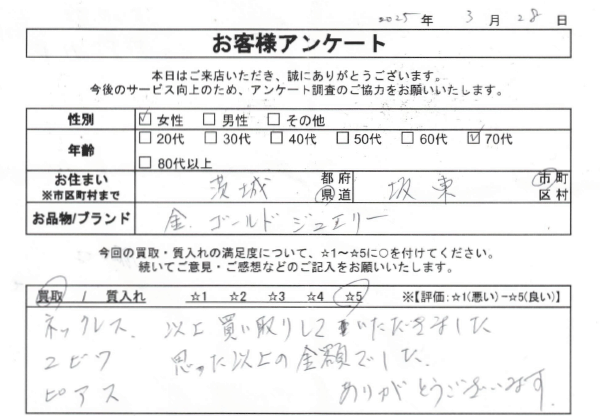 2025年 3月 28日
お客様アンケート
本日はご来店いただき、誠にありがとうございます。
今後のサービス向上のため、アンケート調査のご協力をお願いいたします。
性別 ☑女性 □男性 □その他
年齢 □20代 □30代 □40代 □50代 □60代 ☑70代
□80代以上
お住まい ※市区町村まで 茨城 都府県道 坂東 市町区村
お品物/ブランド 金、ゴールドジュエリー
今回の買取・質入れの満足度について、☆1～☆5に○を付けてください。
続いてご意見・ご感想などのご記入をお願いいたします。
買取 / 質入れ ☆1 ☆2 ☆3 ☆4 ☆5 ※【評価：☆1(悪い)−☆5(良い)】
ネックレス、以上買い取りしていただきました
ユビワ 思った以上の金額でした。
ピアス ありがとうございます。